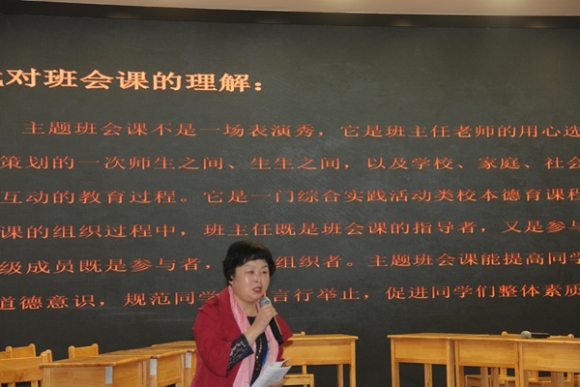 对班会课的理解：
主题班会课不是一场表演秀，它是班主任老师的用心选
策划的一次师生之间、生生之间，以及学校、家庭、社会
互动的教育过程。它是一门综合实践活动类校本德育课程
课的组织过程中，班主任既是班会课的指导者，又是参与
级成员既是参与者，组织者。主题班会课能提高同学
道德意识，规范同学言行举止，促进同学们整体素质